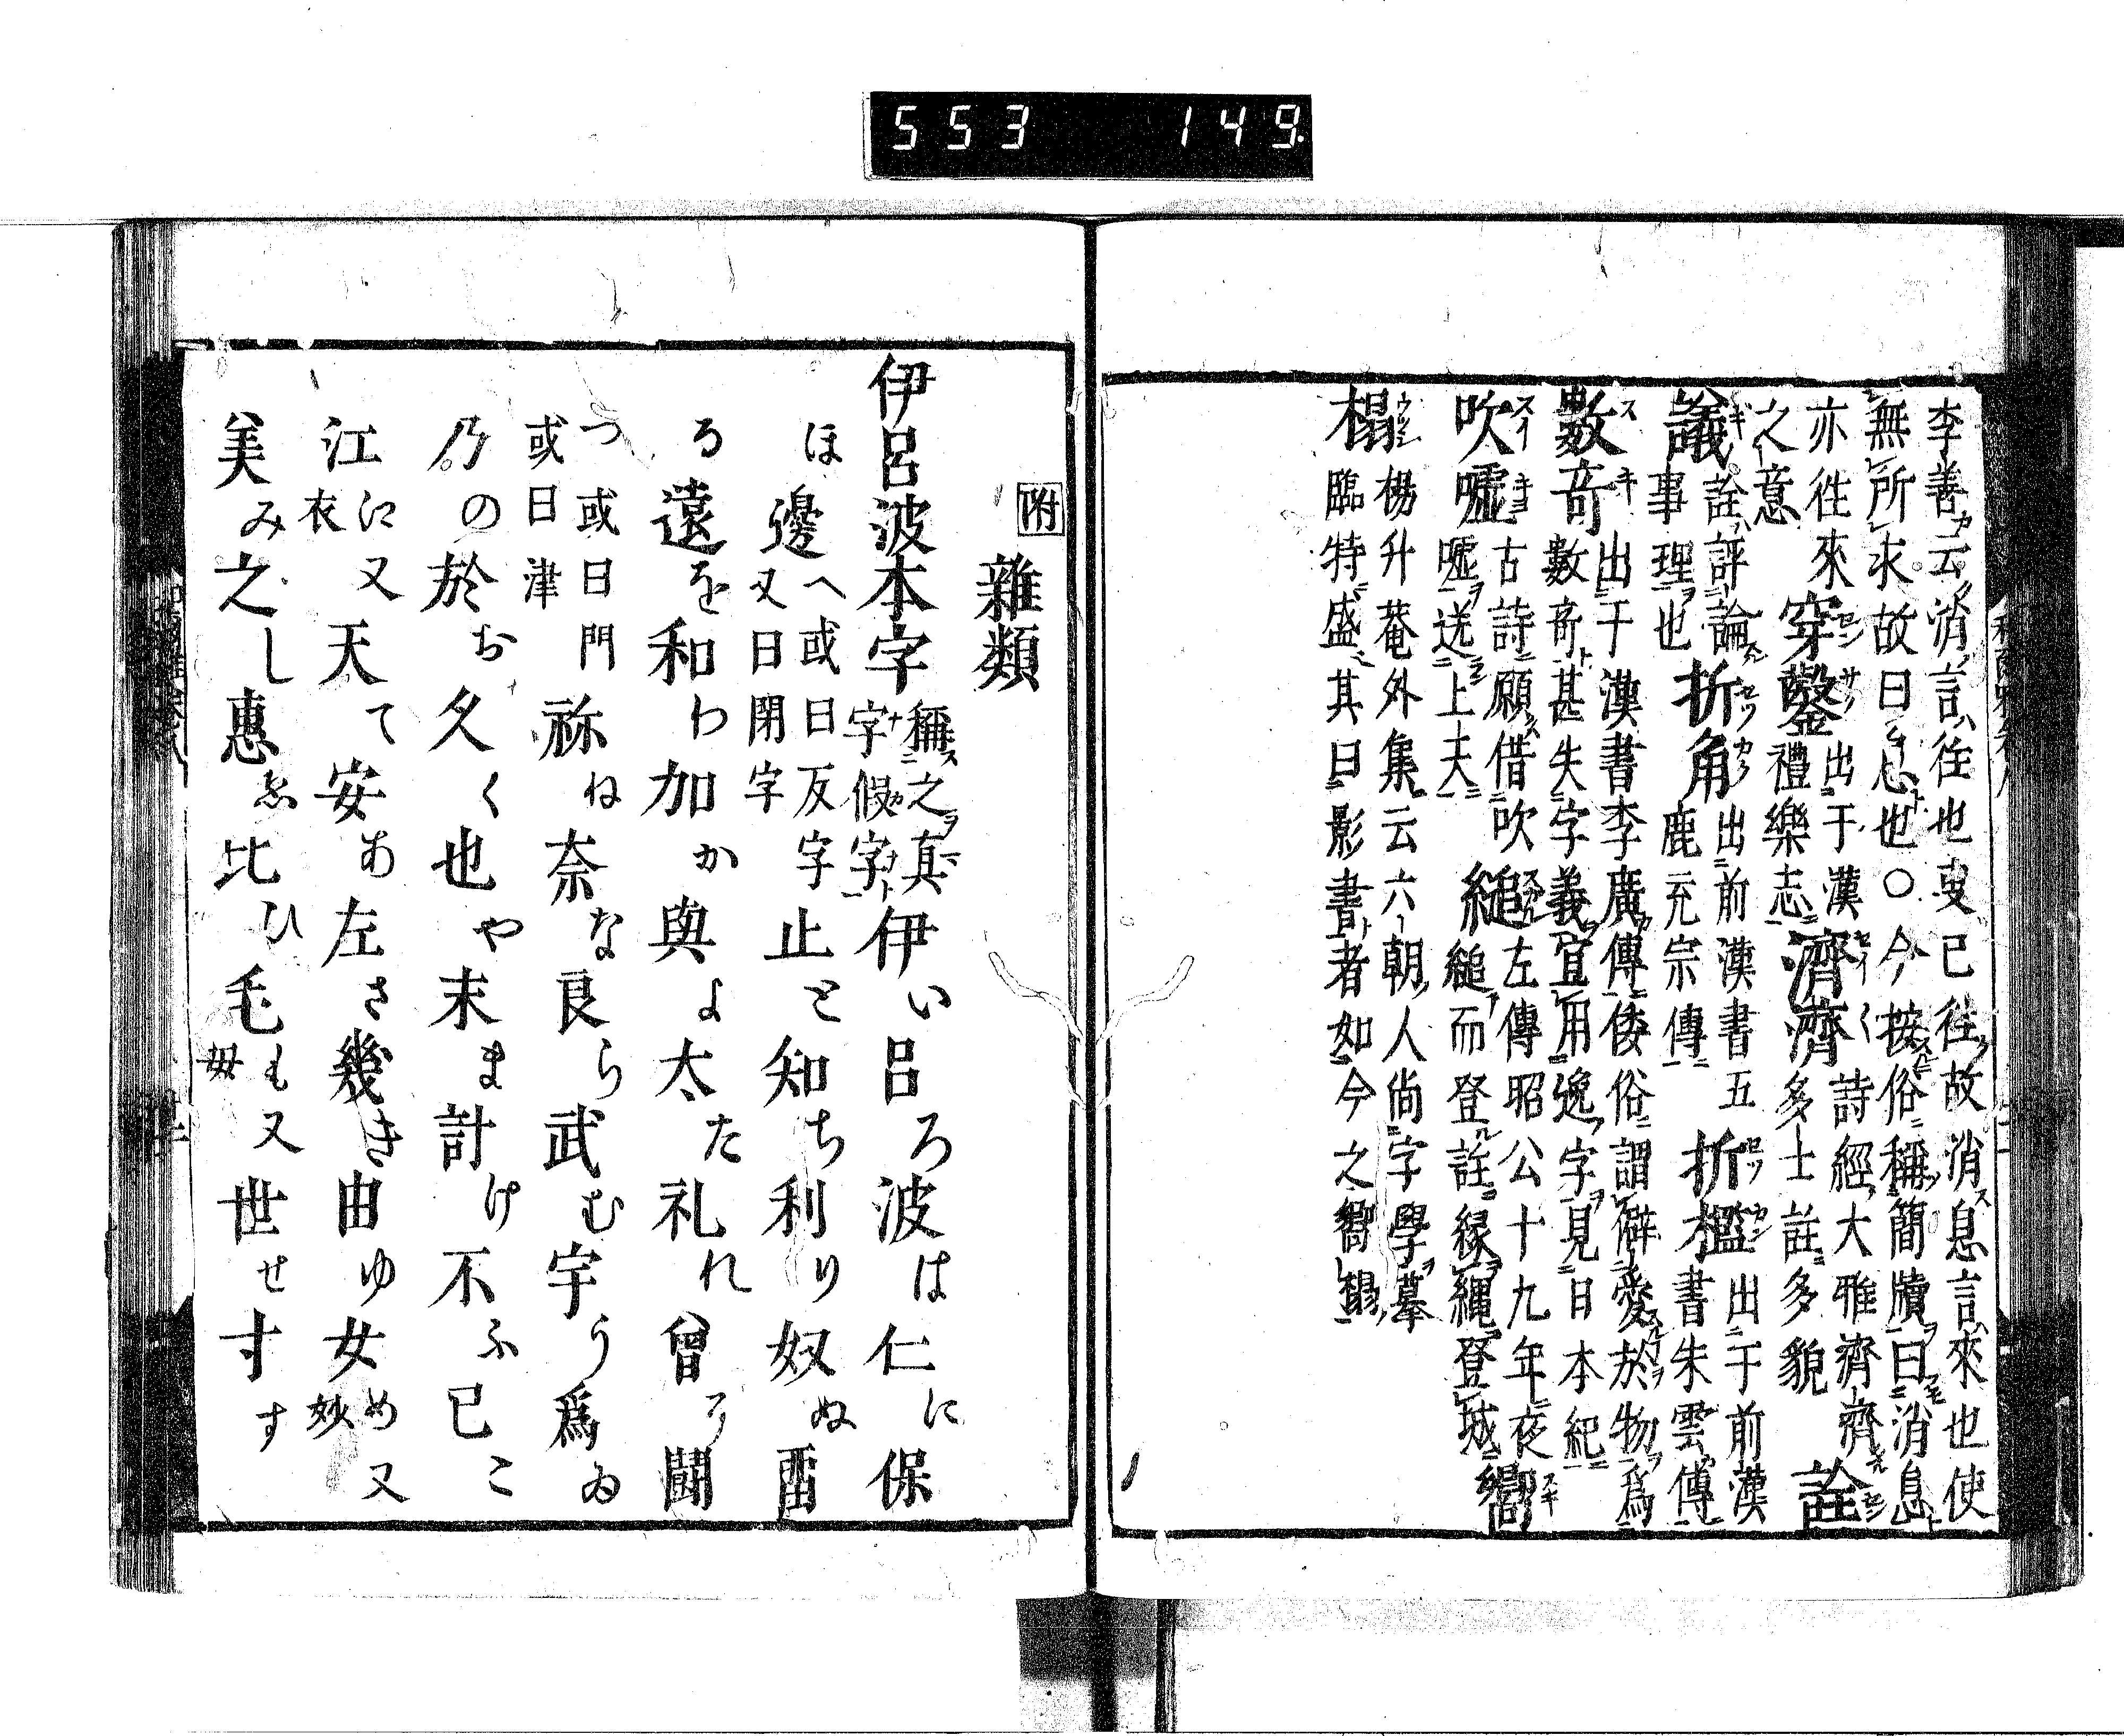 553 149
李善云消言往也叓已往故消息言來也使
無所求故曰息也〇今按俗稱簡牘曰消息
亦往來之意
穿鑿出于漢禮樂志
濟濟詩經大雅濟濟多士註多貌
詮議詮評論事理也
折角出前漢書五鹿充宗傳
折檻出于前漢書朱雲傳
數奇出于漢書李廣傳倭俗謂僻愛於物爲數奇甚失字義宜用逸字見日本紀
吹噓古詩願借吹噓送上天
縋左傳昭公十九年夜縋而登註緣繩登城
榻楊升菴外集云六朝人尚字學摹臨特盛其曰影書者如今之
附
雜類
伊呂波本字稱之真字假字
伊い呂ろ波は仁に保
ほ邊へ或曰反字又曰閉字止と知ち利り奴ぬ畱
る遠を和わ加か與よ太た礼れ曾そ鬪
つ或曰門或曰津祢ね奈な良ら武む宇う爲ゐ
乃の於お久く也や末ま計け不ふ己こ
江江又衣天て安あ左さ幾き由ゆ女め又妙
美み之し惠ゑ比ひ毛も又毋世せ寸す